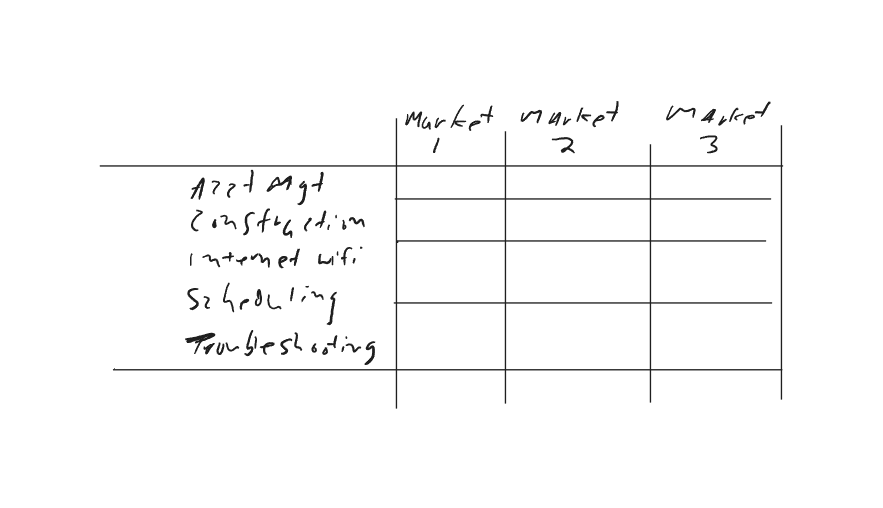 Market Market Market
1 2 3
Asst Mgt
Construction
Internet wifi
Scheduling
Troubleshooting